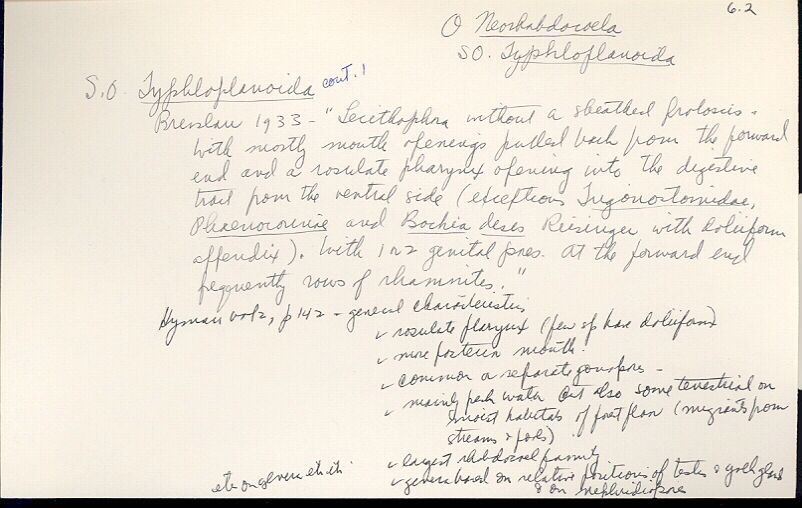 6.2
O Neorhabdocoela
SO. Typhloplanoida
S.O. Typhloplanoida cont. 1
Breslau 1933 - "Lecithophora without a sheathed proboscis.
With mostly mouth openings pulled back from the forward
end and a rosulate pharynx opening into the digestive
tract from the ventral side (exceptions Trigonostomidae,
Phaenocorinae and Bochia deses Reisinger with doliiform
appendix). With 1 or 2 genital pores. At the forward end
frequently rows of rhamnites."
Hyman vol 2, p 142 - general characteristics
✓ rosulate pharynx (few sp have doliiform)
✓ more posterior mouth.
✓ common or separate gonopores -
✓ mainly fresh water but also some terrestrial on
moist habitats of forest floor (migrants from
streams & pools)
✓ largest rhabdocoel family
✓ genera based on relative positions of testes &
& on nephridiopores